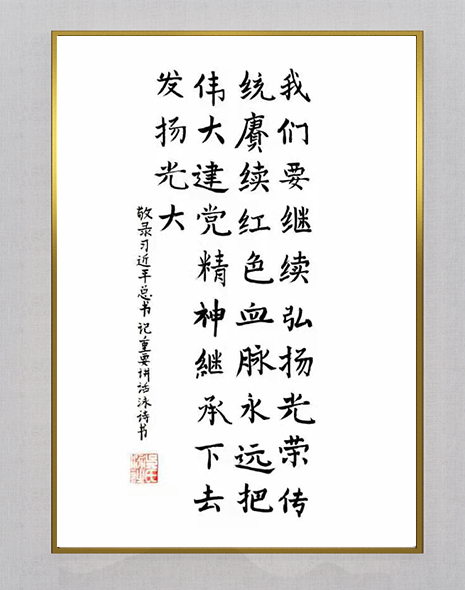 我们要继续弘扬光荣传
统赓续红色血脉永远把
伟大建党精神継承下去
发扬光大
敬录习近平总书记重要讲话泳诗书